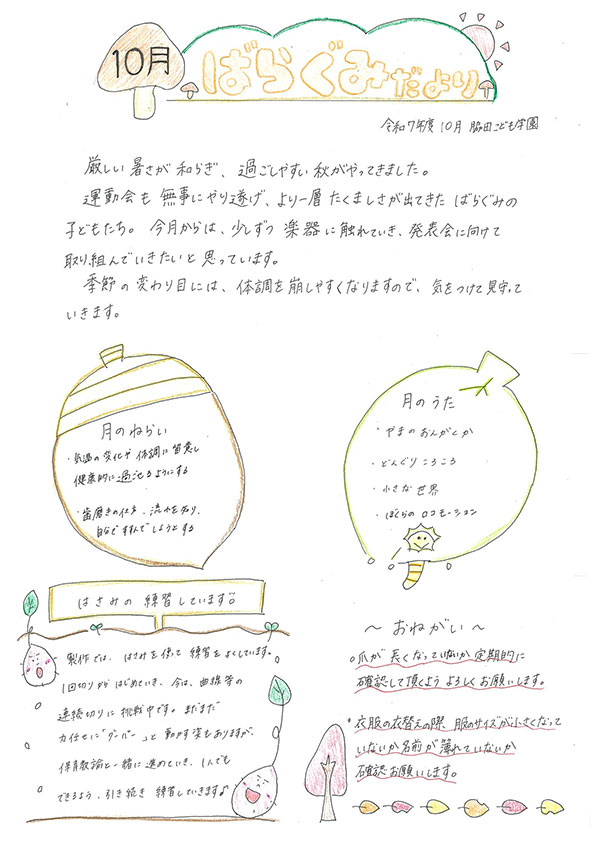 10月
ばらぐみだより
令和7年度 10月 脇田こども学園
厳しい暑さが和らぎ、過ごしやすい秋がやってきました。
運動会も無事にやり遂げ、より一層たくましさが出てきたばらぐみの
子どもたち。今月からは、少しずつ楽器に触れていき、発表会に向けて
取り組んでいきたいと思っています。
季節の変わり目には、体調を崩しやすくなりますので、気をつけて見守って
いきます。
月のねらい
・気温の変化や体調に留意し
健康的に過せるようにする
・歯磨きの仕方、流れを知り、
自分ですすんでしようとする
月のうた
・やまのおんがくか
・どんぐりころころ
・小さな世界
・ぼくらのロコモーション
はさみの練習しています!!
製作では、はさみを使って練習をよくしています。
1回切りからはじめていき、今は、曲線等の
連続切りに挑戦中です。まだまだ
力任せに「グーパー」と動かす姿もありますが、
保育教諭と一緒に進めていき、1人でも
できるよう、引き続き練習していきます♪
〜おねがい〜
○爪が長くなっていないか定期的に
確認して頂くようよろしくお願いします。
○衣服の衣替えの際、服のサイズが小さくなって
いないか名前が薄れていないか
確認お願いします。